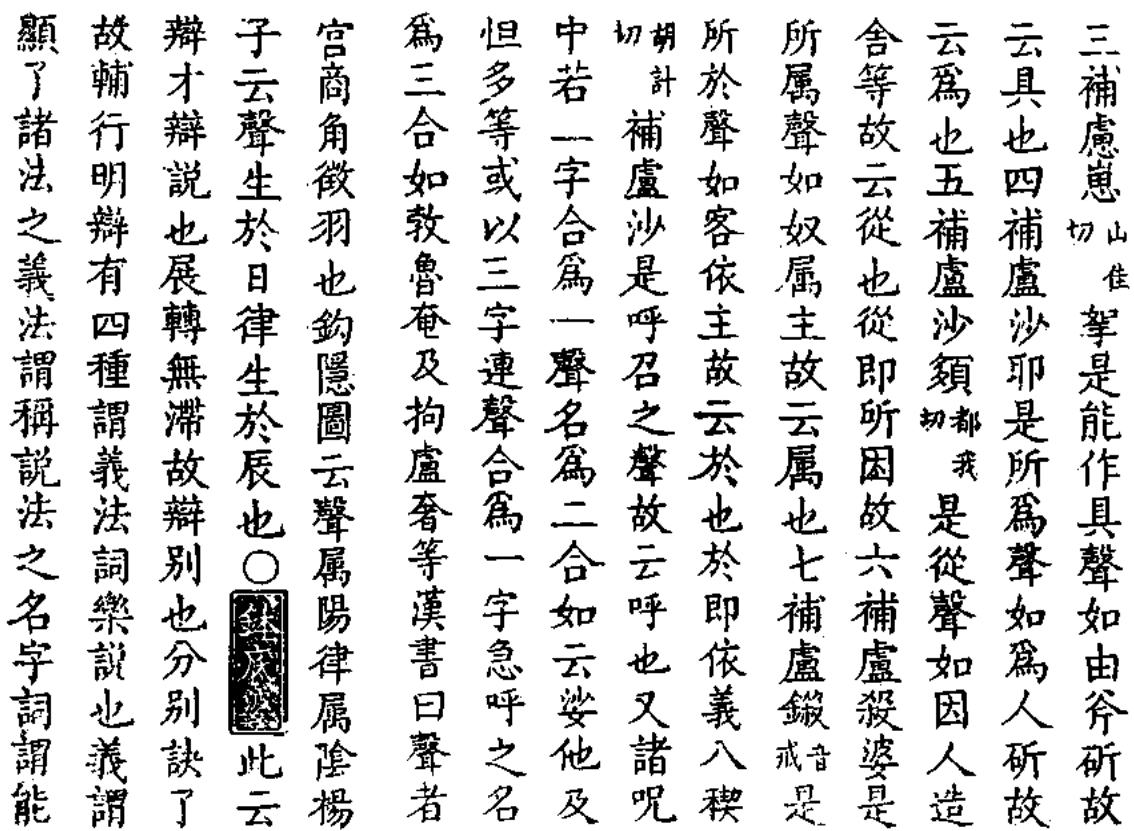 三補慮崽山佳切挐是能作具聲如由斧斫故
云具也四補盧沙耶是所爲聲如爲人斫故
云爲也五補盧沙䫂都我切是從聲如因人造
舍等故云從也從即所因故六補盧殺婆是
所属聲如奴属主故云属也七補盧鎩音戒是
所於聲如客依主故云於也於即依義八稧
胡計切補盧沙是呼召之聲故云呼也又諸呪
中若一字合爲一聲名爲二合如云娑他及
怛多等或以三字連聲合爲一字急呼之名
爲三合如敦魯奄及拘盧奢等漢書曰聲者
宮商角徵羽也鈎隱圖云聲属陽律属陰楊
子云聲生於日律生於辰也○鉢底婆此云
辯才辯説也展轉無滯故辯別也分別訣了
故輔行明辯有四種謂義法詞樂説也義謂
顯了諸法之義法謂稱説法之名字詞謂能